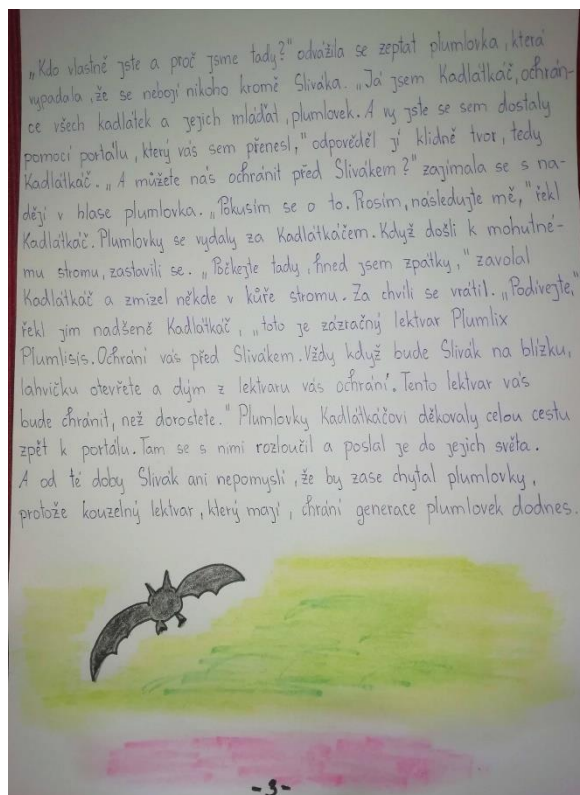 „Kdo vlastně jste a proč jsme tady?" odvážila se zeptat plumlovka, která
vypadala, že se nebojí nikoho kromě Sliváka. „Já jsem Kadlátkáč, ochrán-
ce všech kadlátek a jejich mláďat, plumlovek. A vy jste se sem dostaly
pomocí portálu, který vás sem přenesl," odpověděl jí klidně tvor, tedy
Kadlátkáč. „A můžete nás ochránit před Slivákem?" zajímala se s na-
dějí v hlase plumlovka. „Pokusím se o to. Prosím, následujte mě," řekl
Kadlátkáč. Plumlovky se vydaly za Kadlátkáčem. Když došli k mohutné-
mu stromu, zastavili se. „Počkejte tady, hned jsem zpátky," zavolal
Kadlátkáč a zmizel někde v kůře stromu. Za chvíli se vrátil. „Podívejte,"
řekl jim nadšeně Kadlátkáč, „toto je zázračný lektvar Plumlix
Plumlisis. Ochrání vás před Slivákem. Vždy když bude Slivák na blízku,
lahvičku otevřete a dým z lektvaru vás ochrání. Tento lektvar vás
bude chránit, než dorostete." Plumlovky Kadlátkáčovi děkovaly celou cestu
zpět k portálu. Tam se s nimi rozloučil a poslal je do jejich světa.
A od té doby Slivák ani nepomyslí, že by zase chytal plumlovky,
protože kouzelný lektvar, který mají, chrání generace plumlovek dodnes.
-3-